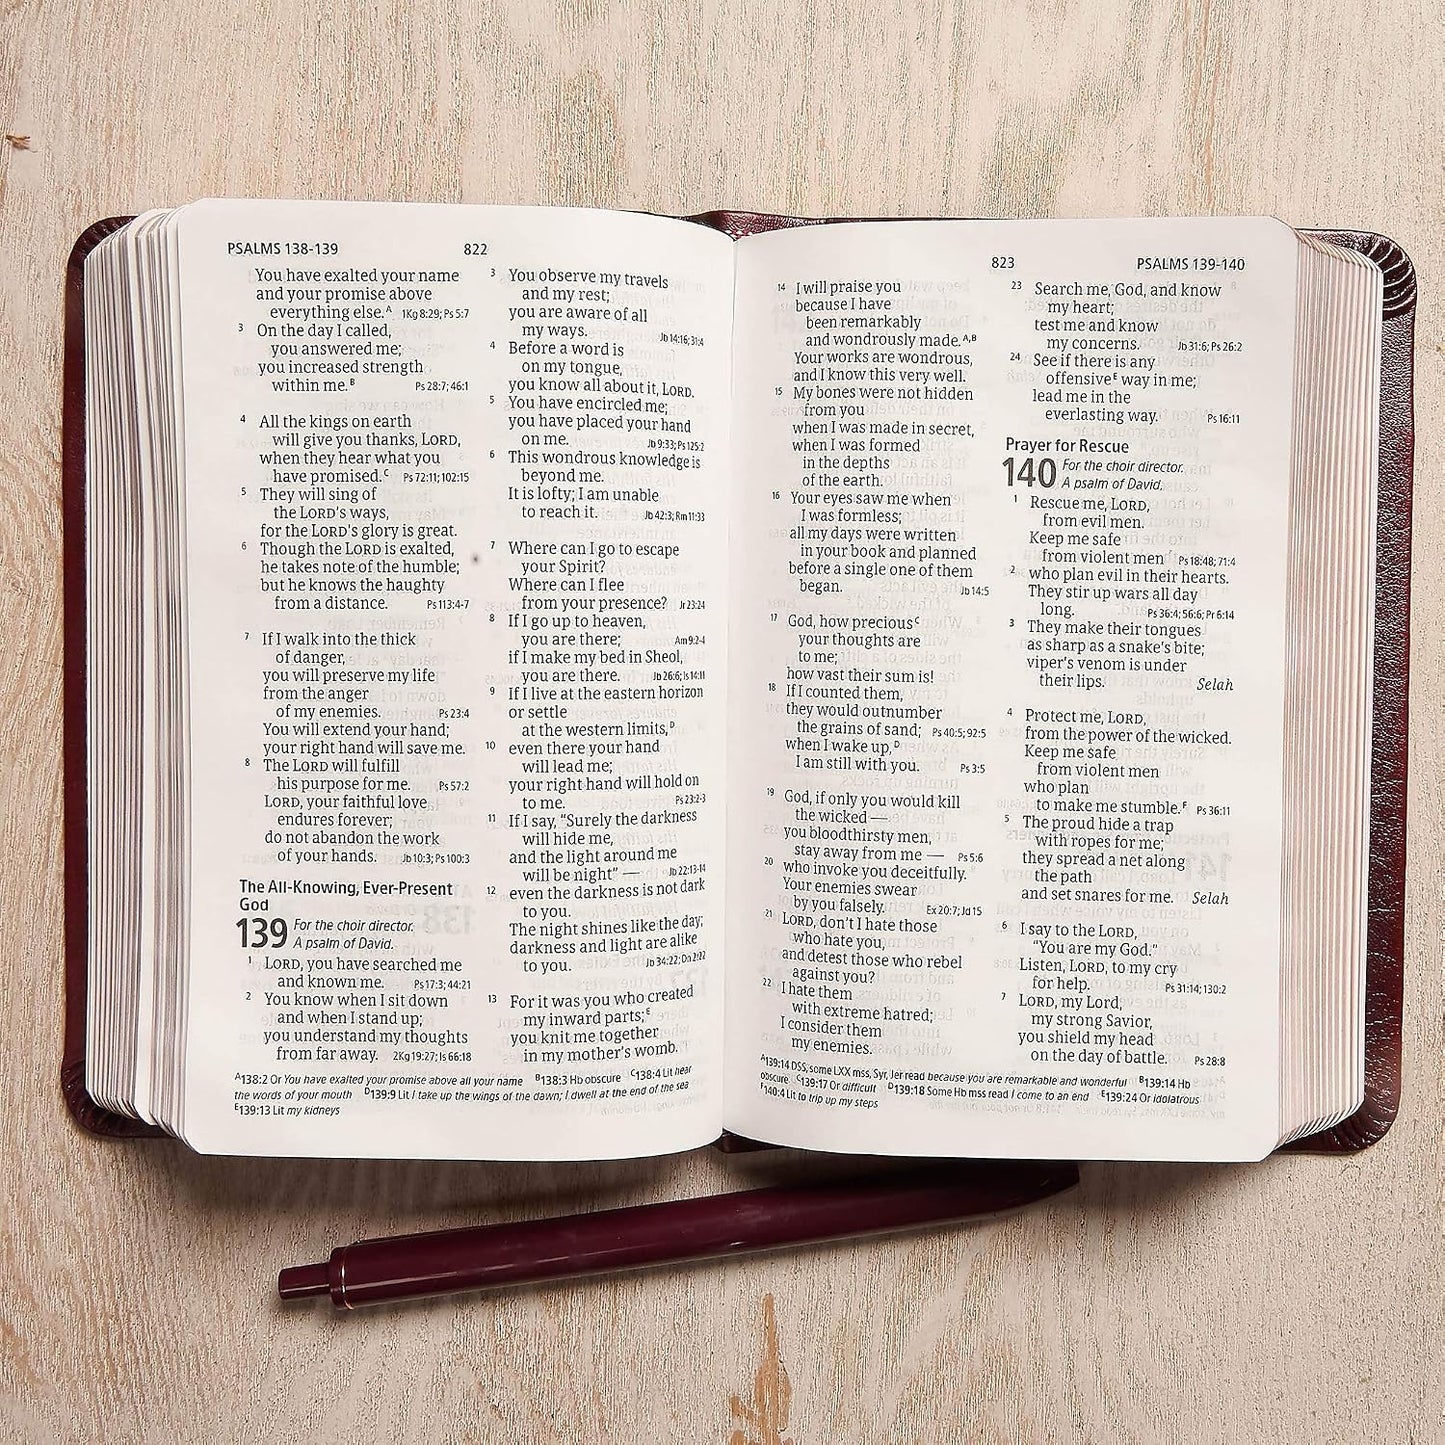 PSALMS 138-139
822
You have exalted your name
and your promise above
everything else.ᴬ 1Kg 8:29; Ps 5:7
3 On the day I called,
you answered me;
you increased strength
within me.ᴮ Ps 28:7; 46:1
4 All the kings on earth
will give you thanks, LORD,
when they hear what you
have promised.ᶜ Ps 72:11; 102:15
5 They will sing of
the LORD's ways,
for the LORD's glory is great.
6 Though the LORD is exalted,
he takes note of the humble;
but he knows the haughty
from a distance. Ps 113:4-7
7 If I walk into the thick
of danger,
you will preserve my life
from the anger
of my enemies. Ps 23:4
You will extend your hand;
your right hand will save me.
8 The LORD will fulfill
his purpose for me. Ps 57:2
LORD, your faithful love
endures forever;
do not abandon the work
of your hands. Jb 10:3; Ps 100:3
The All-Knowing, Ever-Present
God
139 For the choir director.
A psalm of David.
1 LORD, you have searched me
and known me. Ps 17:3; 44:21
2 You know when I sit down
and when I stand up;
you understand my thoughts
from far away. 2Kg 19:27; Is 66:18
3 You observe my travels
and my rest;
you are aware of all
my ways. Jb 14:16; 31:4
4 Before a word is
on my tongue,
you know all about it, LORD.
5 You have encircled me;
you have placed your hand
on me. Jb 9:33; Ps 125:2
6 This wondrous knowledge is
beyond me.
It is lofty; I am unable
to reach it. Jb 42:3; Rm 11:33
7 Where can I go to escape
your Spirit?
Where can I flee
from your presence? Jr 23:24
8 If I go up to heaven,
you are there; Am 9:2-4
if I make my bed in Sheol,
you are there. Jb 26:6; Is 14:11
9 If I live at the eastern horizon
or settle
at the western limits,ᴰ
10 even there your hand
will lead me;
your right hand will hold on
to me. Ps 23:2-3
11 If I say, “Surely the darkness
will hide me,
and the light around me
will be night” — Jb 22:13-14
12 even the darkness is not dark
to you.
The night shines like the day;
darkness and light are alike
to you. Jb 34:22; Dn 2:22
13 For it was you who created
my inward parts;ᴱ
you knit me together
in my mother's womb.
ᴬ138:2 Or You have exalted your promise above all your name ᴮ138:3 Hb obscure ᶜ138:4 Lit hear
the words of your mouth ᴰ139:9 Lit I take up the wings of the dawn; I dwell at the end of the sea
ᴱ139:13 Lit my kidneys
823
PSALMS 139-140
14 I will praise you
because I have
been remarkably
and wondrously made.ᴬ,ᴮ
Your works are wondrous,
and I know this very well.
15 My bones were not hidden
from you
when I was made in secret,
when I was formed
in the depths
of the earth.
16 Your eyes saw me when
I was formless;
all my days were written
in your book and planned
before a single one of them
began. Jb 14:5
17 God, how preciousᶜ
your thoughts are
to me;
how vast their sum is!
18 If I counted them,
they would outnumber
the grains of sand; Ps 40:5; 92:5
when I wake up,ᴰ
I am still with you. Ps 3:5
19 God, if only you would kill
the wicked —
you bloodthirsty men,
stay away from me — Ps 5:6
20 who invoke you deceitfully.
Your enemies swear
by you falsely. Ex 20:7; Jd 15
21 LORD, don't I hate those
who hate you,
and detest those who rebel
against you?
22 I hate them
with extreme hatred;
I consider them
my enemies.
23 Search me, God, and know
my heart;
test me and know
my concerns. Jb 31:6; Ps 26:2
24 See if there is any
offensiveᴱ way in me;
lead me in the
everlasting way. Ps 16:11
Prayer for Rescue
140 For the choir director.
A psalm of David.
1 Rescue me, LORD,
from evil men.
Keep me safe
from violent men Ps 18:48; 71:4
2 who plan evil in their hearts.
They stir up wars all day
long. Ps 36:4; 56:6; Pr 6:14
3 They make their tongues
as sharp as a snake's bite;
viper's venom is under
their lips. Selah
4 Protect me, LORD,
from the power of the wicked.
Keep me safe
from violent men
who plan
to make me stumble.ᶠ Ps 36:11
5 The proud hide a trap
with ropes for me;
they spread a net along
the path
and set snares for me. Selah
6 I say to the LORD,
“You are my God.”
Listen, LORD, to my cry
for help. Ps 31:14; 130:2
7 LORD, my Lord,
my strong Savior,
you shield my head
on the day of battle. Ps 28:8
ᴬ139:14 DSS, some LXX mss, Syr, Jer read because you are remarkable and wonderful ᴮ139:14 Hb
obscure ᶜ139:17 Or difficult ᴰ139:18 Some Hb mss read I come to an end ᴱ139:24 Or idolatrous
ᶠ140:4 Lit to trip up my steps